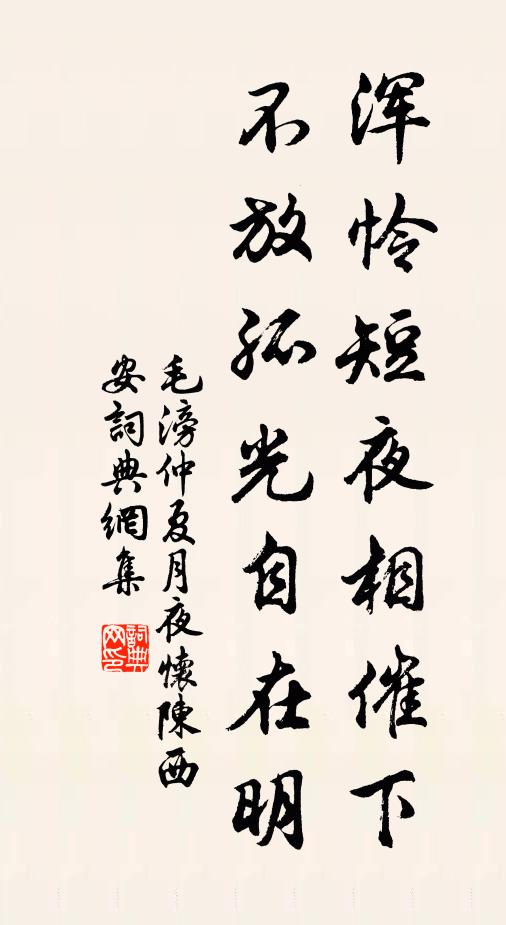 浑怜短夜相催下
不放孤光自在明
毛滂仲夏月夜懷陳西
安詞典網集
詞典
网印